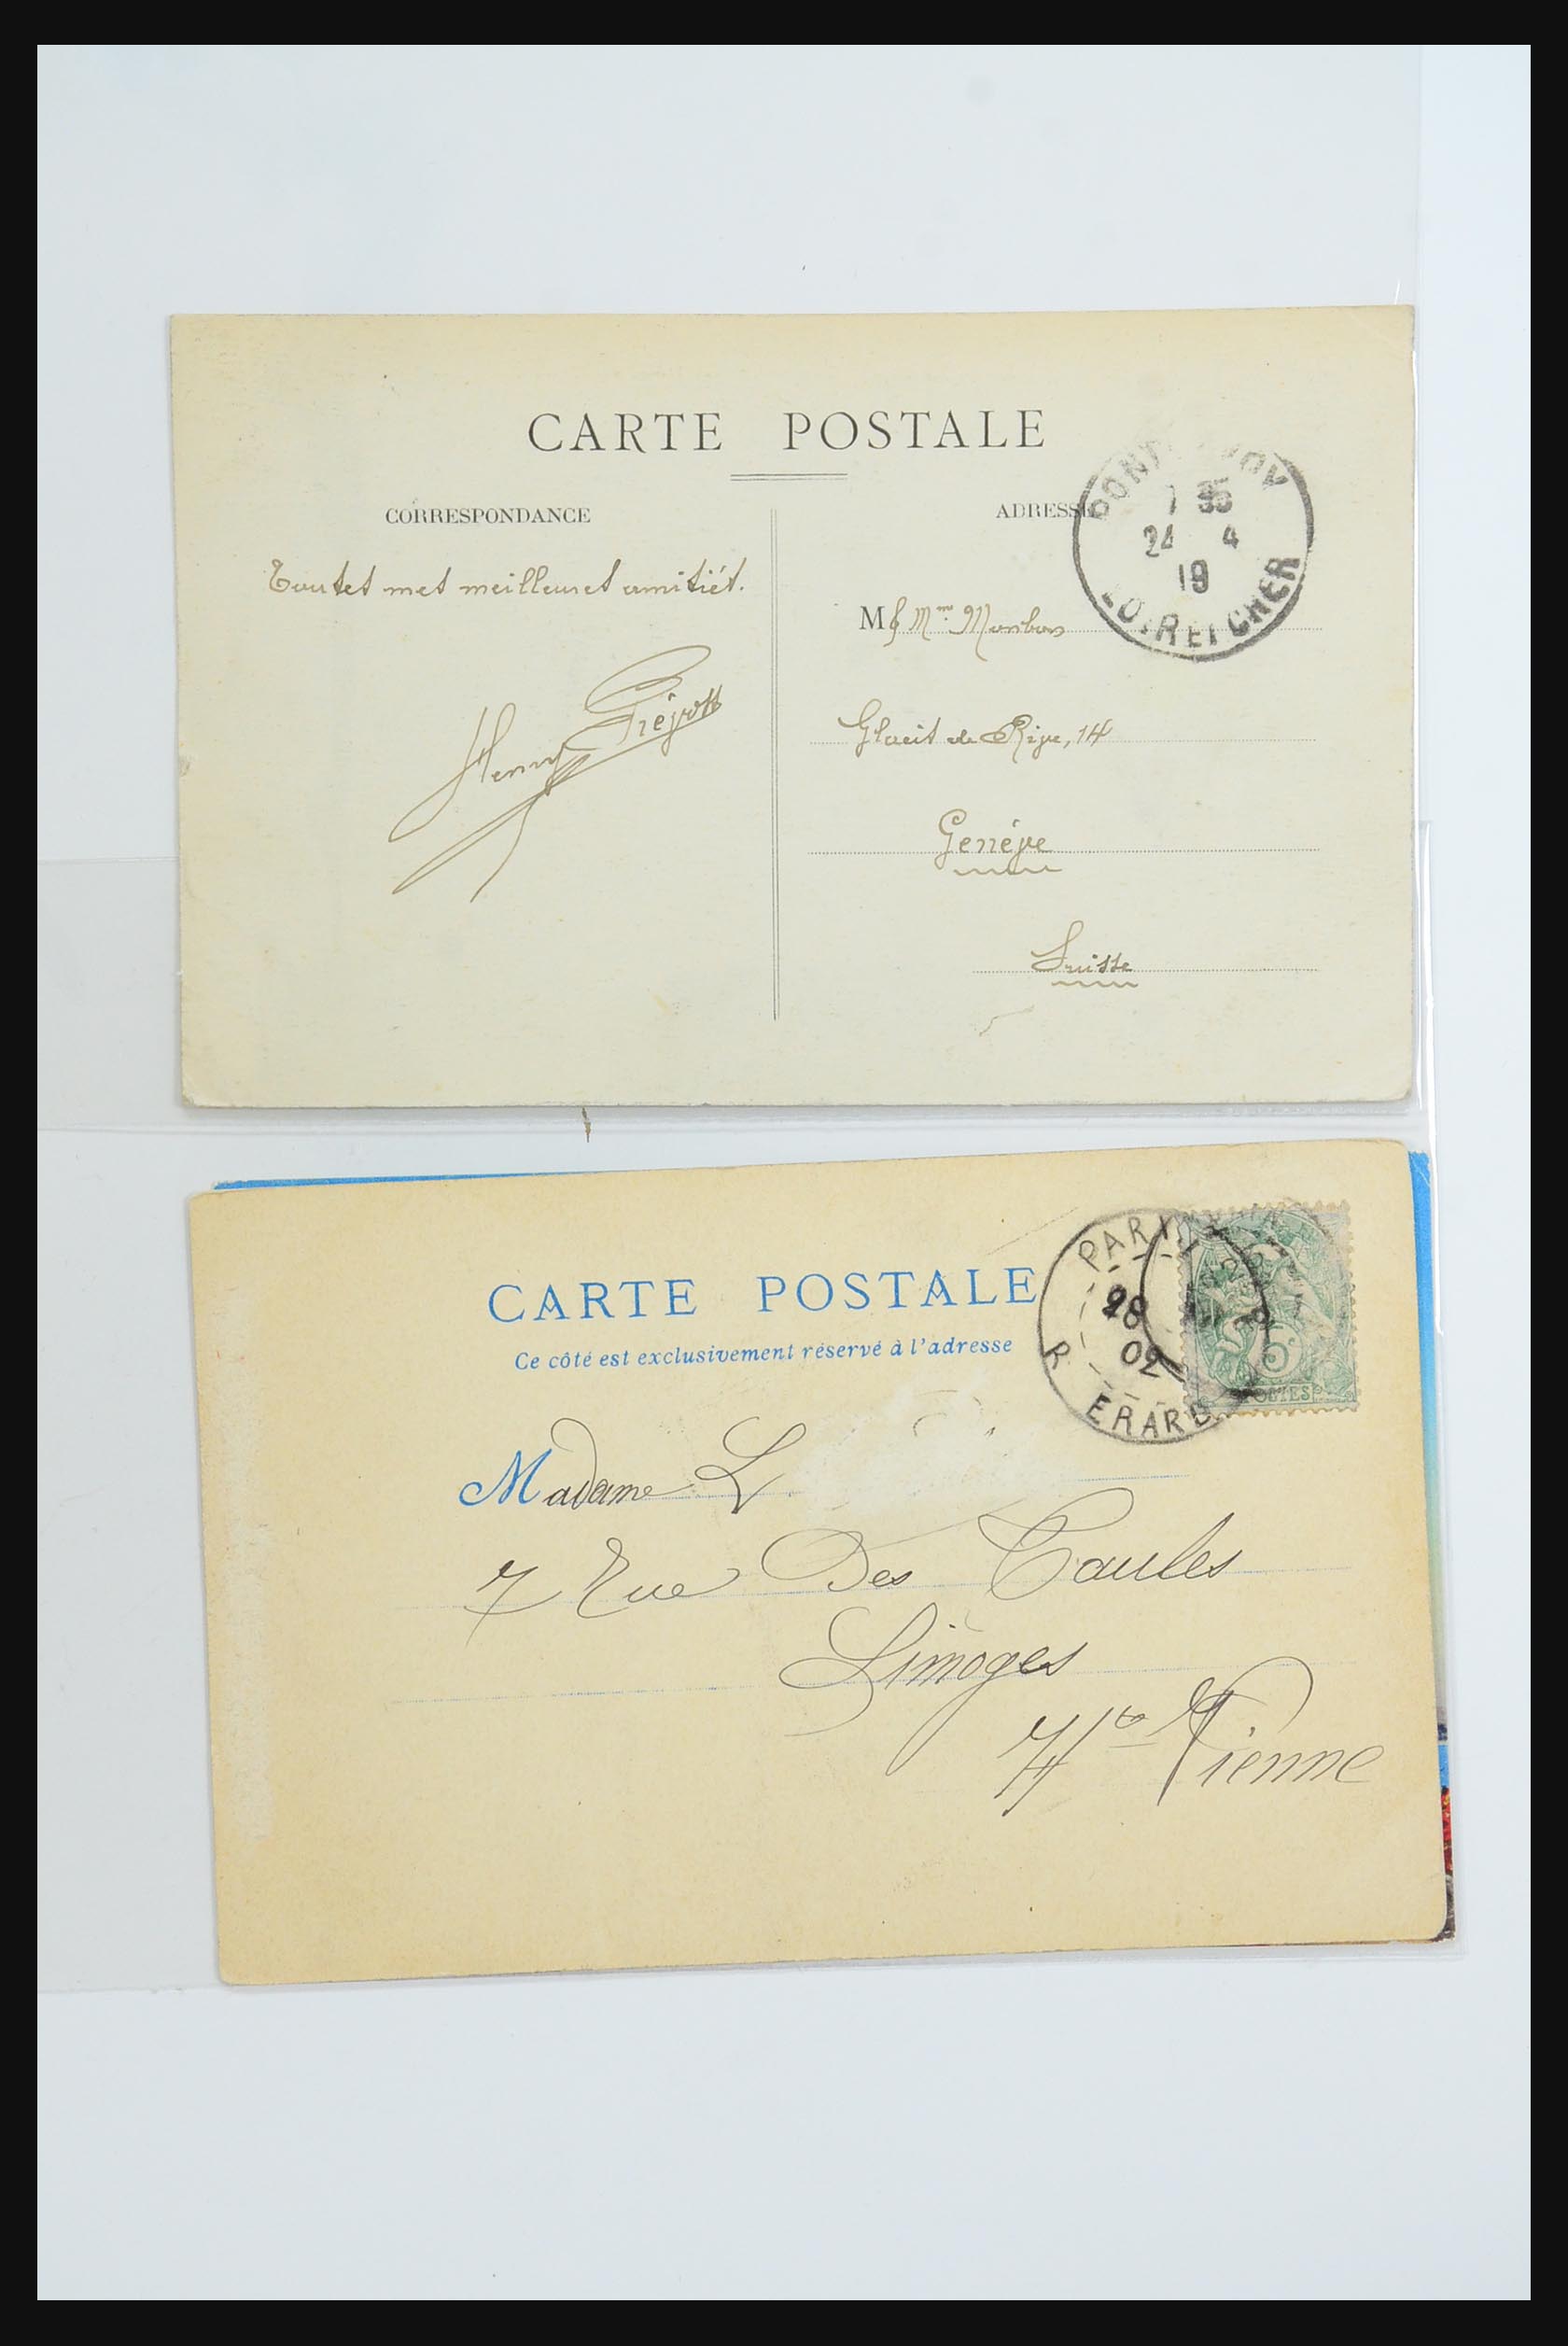 CARTE POSTALE
CORRESPONDANCE
ADRESSE
7 35
24 4
19
LOIR ET CHER
Toutes mes meilleures amitiés.
M & Mme
Henry
Glacis de Rive, 14
Genève
Suisse
CARTE POSTALE
Ce côté est exclusivement réservé à l'adresse
PARIS
02
R. ERARD
POSTES
Madame L
7 Rue Des Coules
Limoges
Hte Vienne